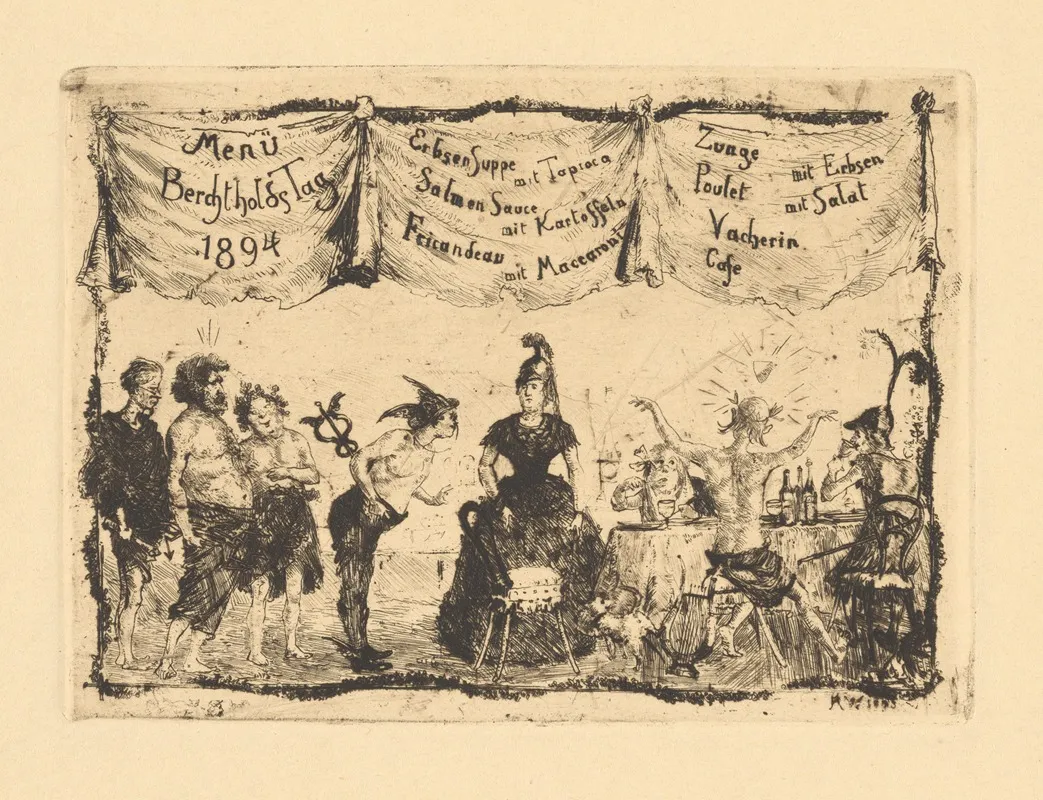 Menü
Berchtholds Tag
1894
ErbsenSuppe mit Tapioca
Salmen Sauce mit Kartoffeln
Fricandeau mit Maccaroni
Zunge mit Erbsen
Poulet mit Salat
Vacherin
Cafe